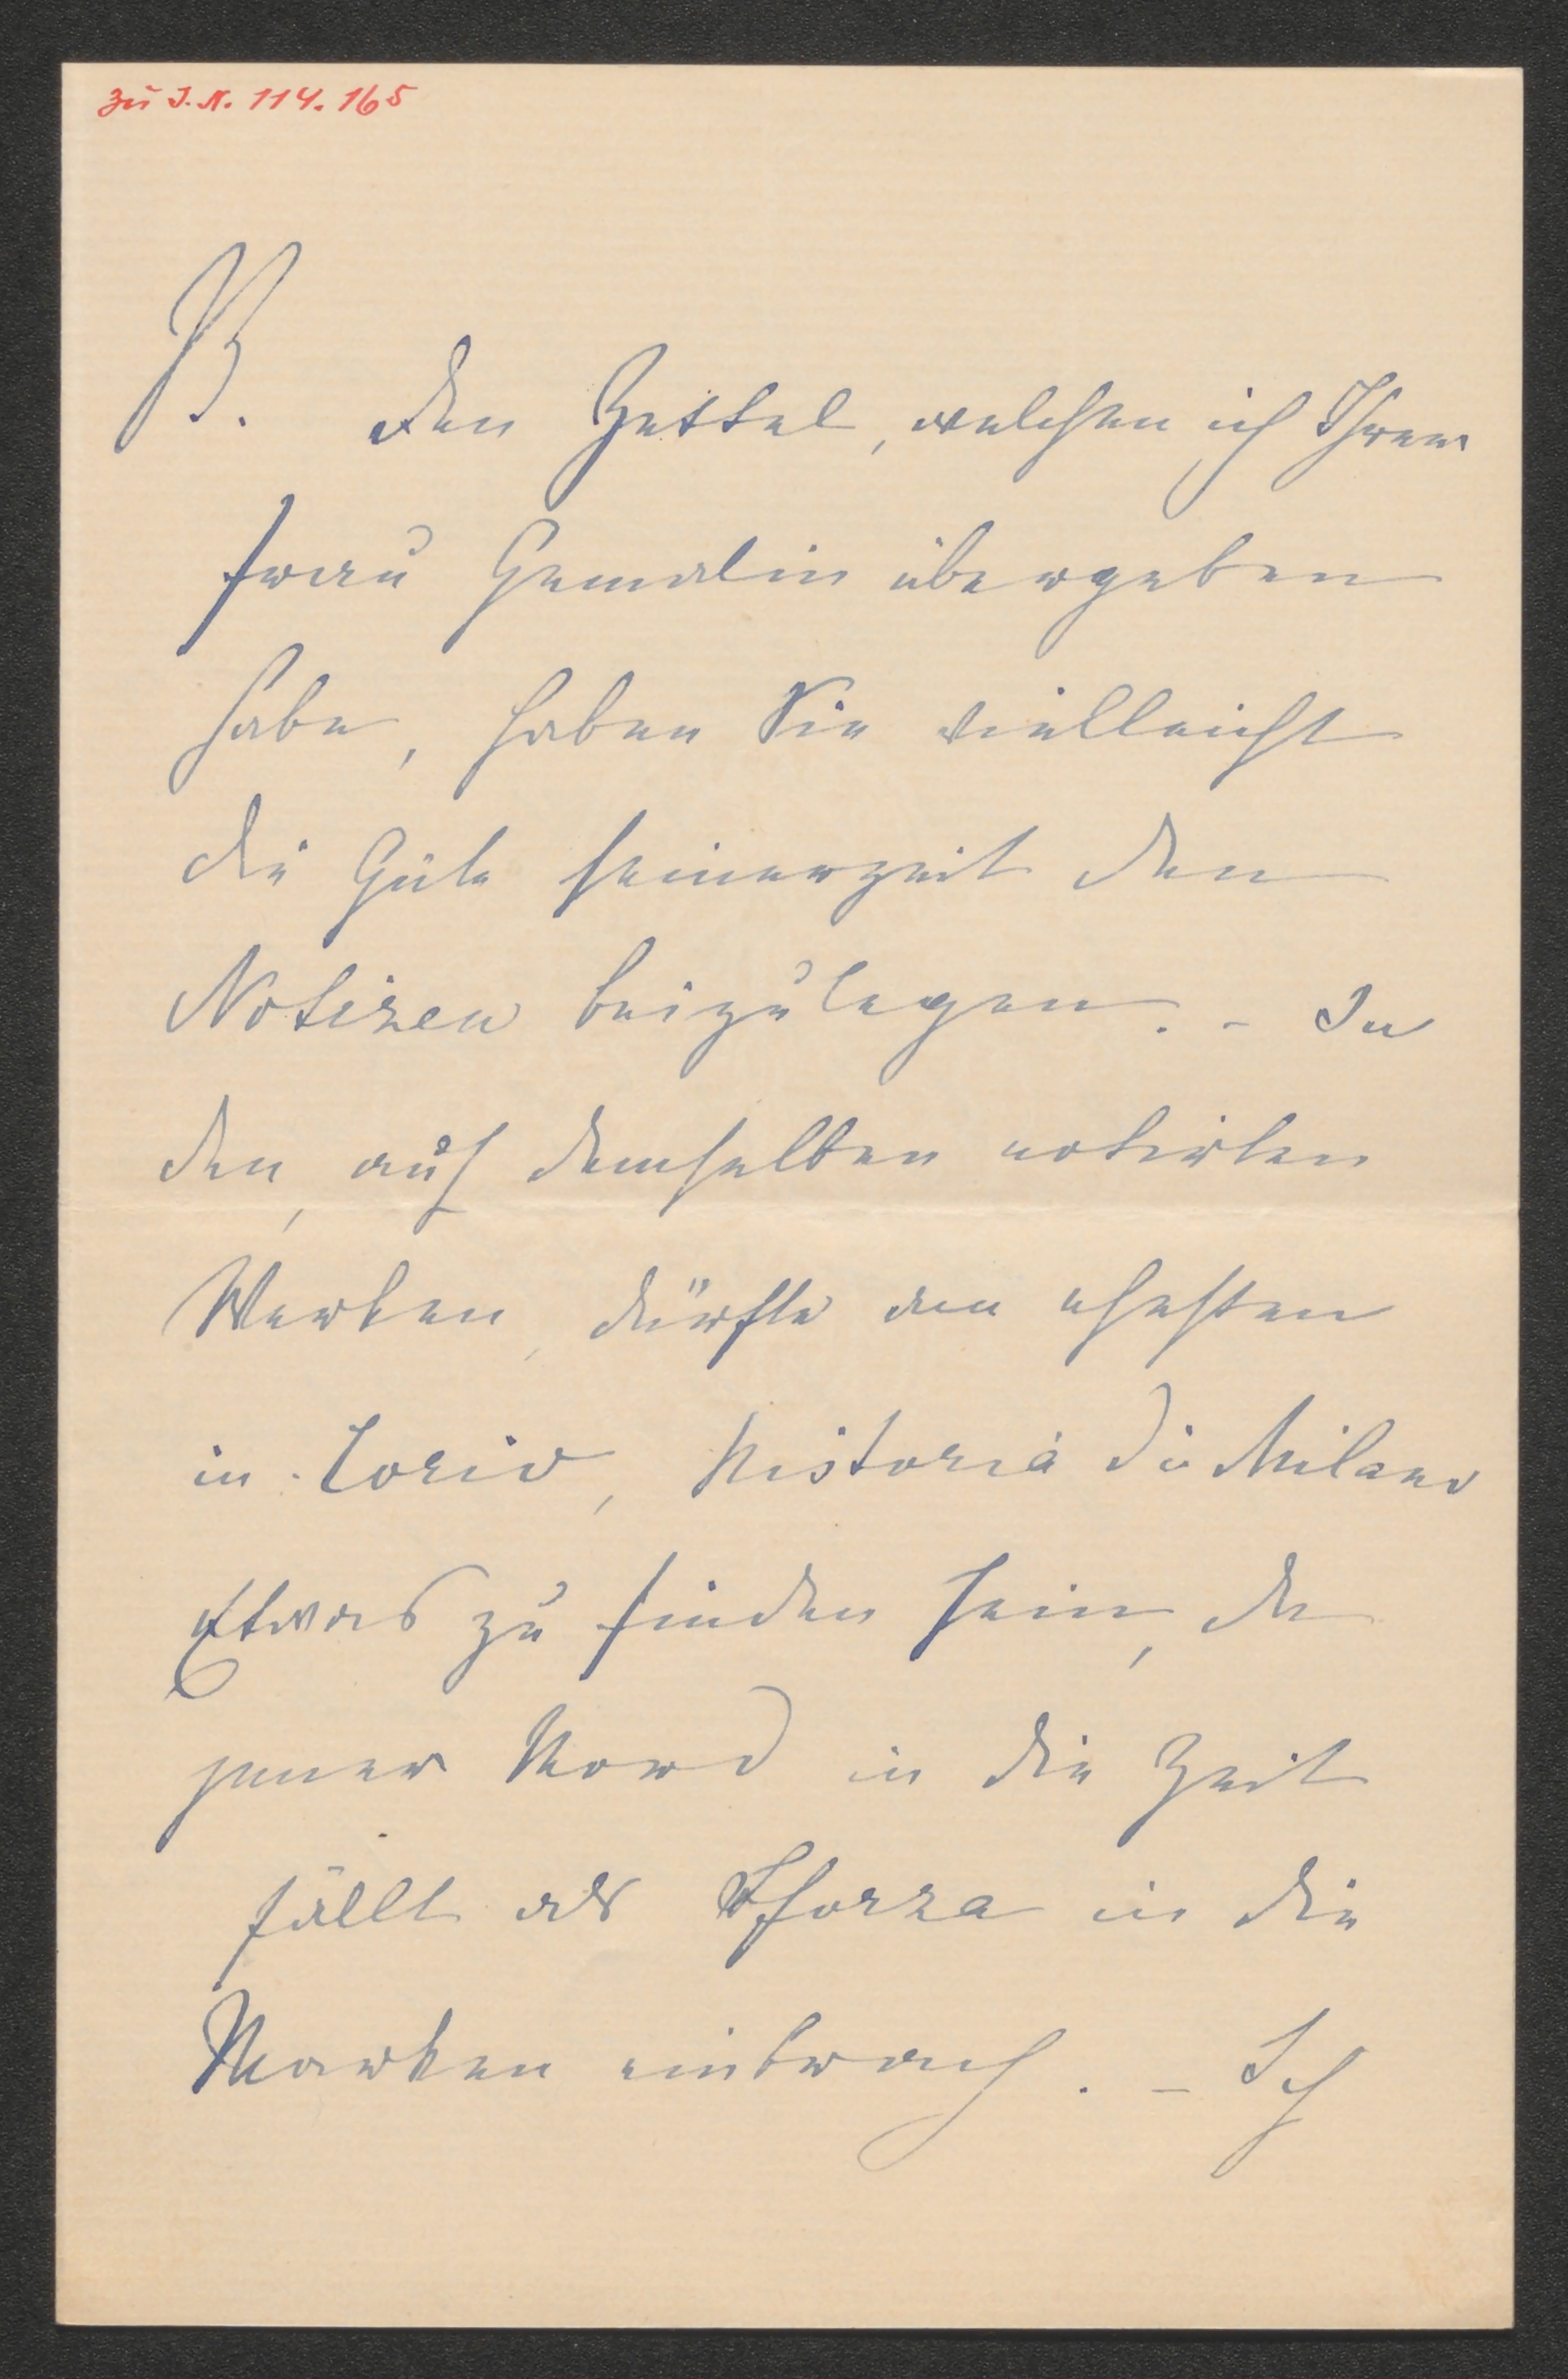 zu I.N. 114.165
den Zettel, welchen ich Ihrer
Frau Gemalin übergeben
habe, haben Sie vielleicht
die Güte seinerzeit den
Notizen beizulegen. – In
den, auf demselben notirten
Werken, dürfte am ehesten
in Corio, Historia di Milano
Etwas zu finden sein, da
jener Mord in die Zeit
fällt als Sforza in die
Marken einbrach. – Ich